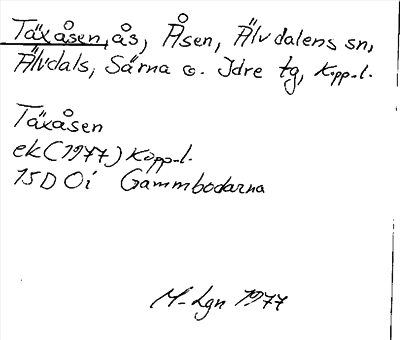 Täxåsen, ås, Åsen, Älvdalens sn,
Älvdals, Särna o. Idre tg, Kopp-l.
Täxåsen
ek (1977) Kopp-l.
15D 0i Gammbodarna
M-Lgn 1977